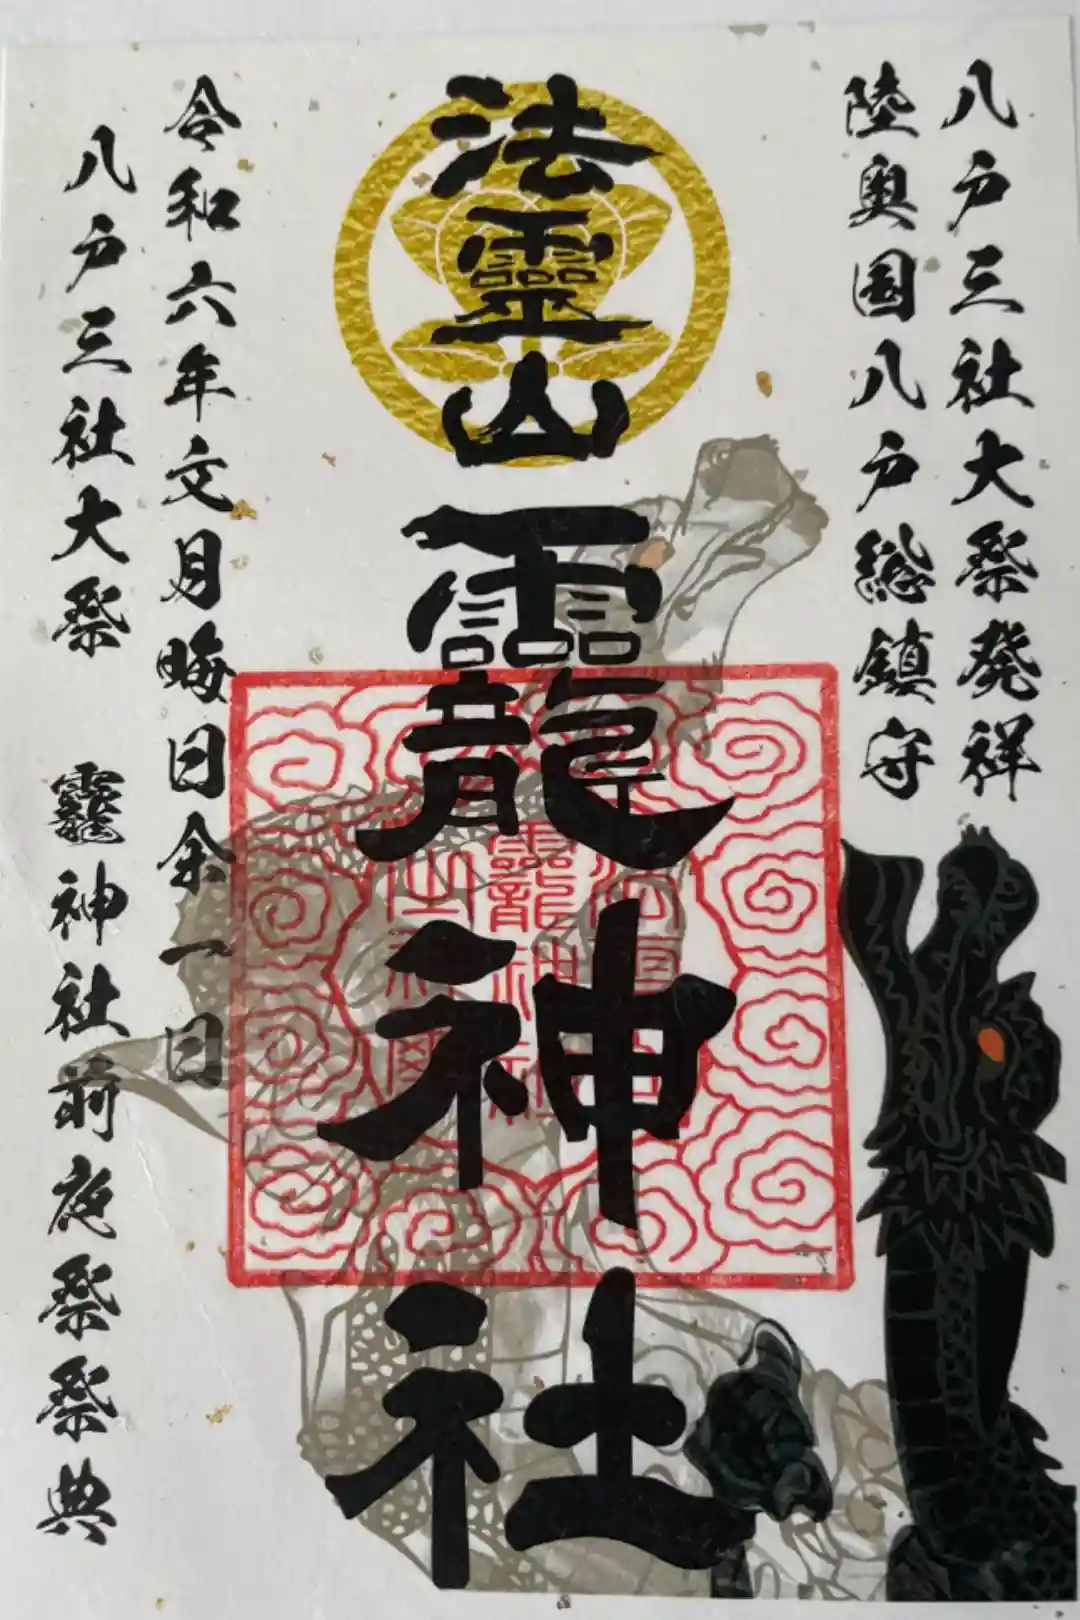 八戸三社大祭発祥
陸奥国八戸総鎮守
法霊山
龗神社
令和六年文月晦日余一日
八戸三社大祭 龗神社前夜祭祭典